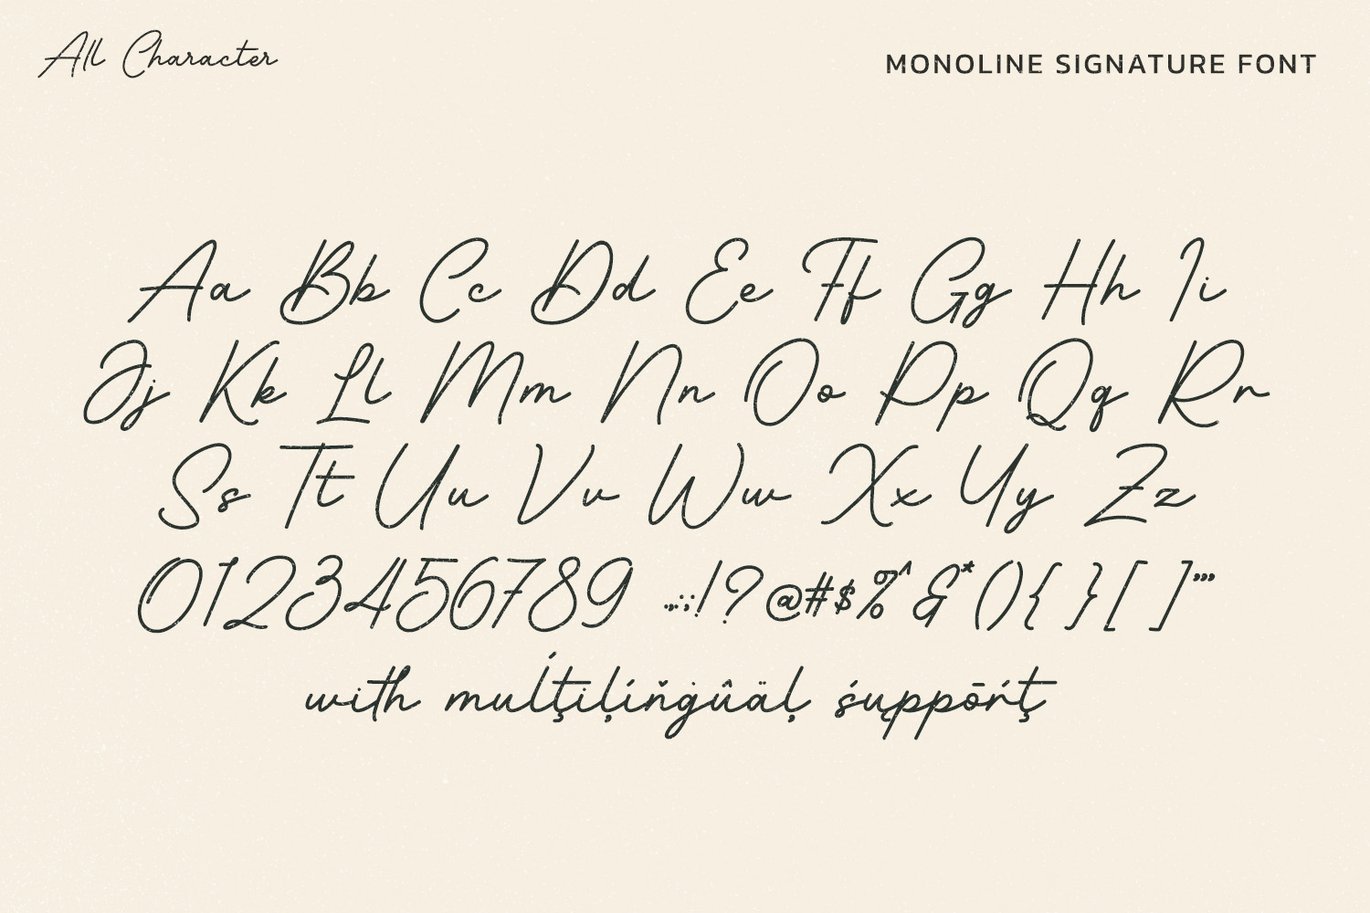 All Character
MONOLINE SIGNATURE FONT
Aa Bb Cc Dd Ee Ff Gg Hh Ii
Jj Kk Ll Mm Nn Oo Pp Qq Rr
Ss Tt Uu Vv Ww Xx Yy Zz
0123456789 .,..:;!?@#$%^&*(){ }[ ]"'
with mulţíļíňġûäļ śųppōŕţ